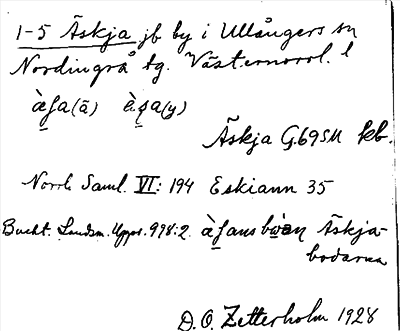 1-5 Äskja jb by i Ullångers sn
Nordingrå tg. Västernorrl. l
Äskja G69SM kb.
Norrl. Saml. VI: 194 Eskiann 35
Bucht. Landsm. Uppt. 998:2. Äskja-
bodarna
D. O. Zetterholm 1928